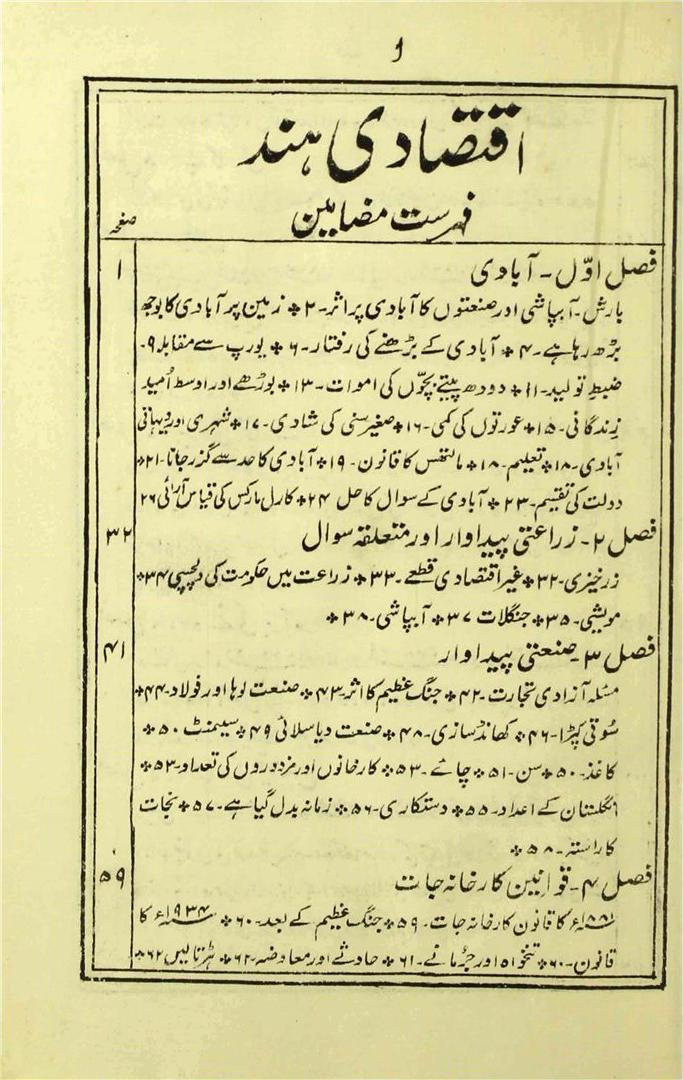 1
اقتصادی ہند
فہرست مضامین
صفحہ
فصل اوّل - آبادی ۱
بارش - آبپاشی اور صنعتوں کا آبادی پر اثر - ۲ * زمین پر آبادی کا بوجھ
بڑھ رہا ہے - ۴ * آبادی کے بڑھنے کی رفتار - ۶ * یورپ سے مقابلہ ۹ -
ضبطِ تولید - ۱۱ * دودھ پیتے بچّوں کی اموات - ۱۳ * بوڑھے اور اوسط اُمید
زندگانی - ۱۵ * عورتوں کی کمی - ۱۶ * صغیر سنی کی شادی - ۱۷ * شہری اور دیہاتی
آبادی - ۱۸ * تعلیم - ۱۸ * مالتھس کا قانون - ۱۹ * آبادی کا حد سے گزر جانا - ۲۱ *
دولت کی تقسیم - ۲۳ * آبادی کے سوال کا حل ۲۴ * کارل مارکس کی قیاس آرائی ۲۶
فصل ۲ - زراعتی پیداوار اور متعلقہ سوال ۳۲
زرخیزی - ۳۲ * غیر اقتصادی قطعے - ۳۳ * زراعت میں حکومت کی دلچسپی ۳۴ *
مویشی - ۳۵ * جنگلات ۳۷ * آبپاشی - ۳۸ *
فصل ۳ - صنعتی پیداوار ۴۱
مسئلہ آزادی تجارت - ۴۲ * جنگ عظیم کا اثر - ۴۳ * صنعت لوہا اور فولاد - ۴۴ *
سُوتی کپڑا - ۴۶ * کھانڈ سازی - ۴۸ * صنعت دیا سلائی ۴۹ * سیمنٹ - ۵۰ *
کاغذ - ۵۰ * سن - ۵۱ * چائے - ۵۳ * کارخانوں اور مزدوروں کی تعداد - ۵۳ *
انگلستان کے اعداد - ۵۵ * دستکاری - ۵۶ * زمانہ بدل گیا ہے - ۵۷ * نجات
کا راستہ - ۵۸ *
فصل ۴ - قوانین کارخانہ جات ۵۹
۱۸۸۱ء کا قانون کارخانہ جات - ۵۹ * جنگ عظیم کے بعد - ۶۰ * ۱۹۳۴ء کا
قانون - ۶۰ * تنخواہ اور جرمانے - ۶۱ * حادثے اور معاوضہ - ۶۲ * ہڑتالیں ۶۲ *